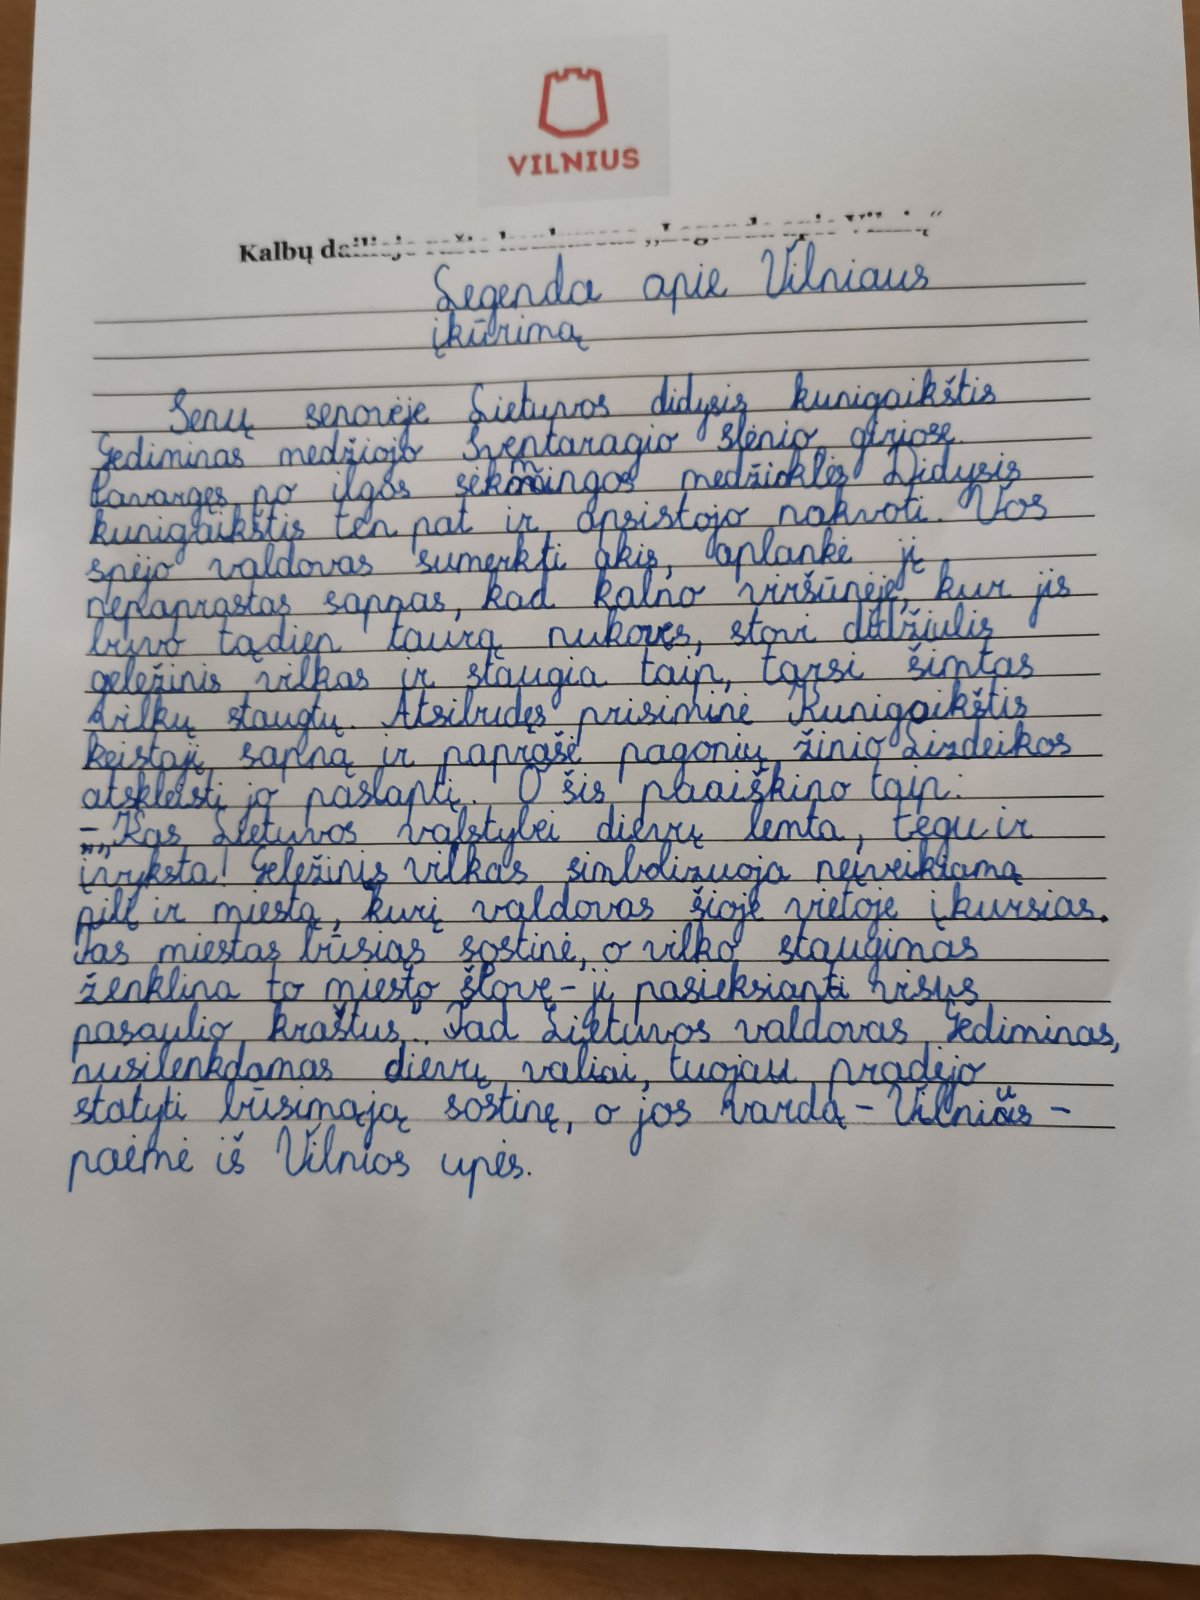 VILNIUS
Kalbų dailiojo rašto konkursas „Legenda apie Vilnių“
Legenda apie Vilniaus
įkūrimą
Senų senovėje Lietuvos didysis kunigaikštis
Gediminas medžiojo Šventaragio slėnio giriose.
Pavargęs po ilgos sėkmingos medžioklės Didysis
kunigaikštis ten pat ir apsistojo nakvoti. Vos
spėjo valdovas sumerkti akis, aplankė jį
nepaprastas sapnas, kad kalno viršūnėje, kur jis
buvo tądien taurą nukovęs, stovi didžiulis
geležinis vilkas ir staugia taip, tarsi šimtas
vilkų staugtų. Atsibudęs prisiminė Kunigaikštis
keistąjį sapną ir paprašė pagonių žinio Lizdeikos
atskleisti jo paslaptį. O šis paaiškino taip:
– „Kas Lietuvos valstybei dievų lemta, tegu ir
įvyksta! Geležinis vilkas simbolizuoja neįveikiamą
pilį ir miestą, kurį valdovas šioje vietoje įkursias.
Tas miestas būsiąs sostinė, o vilko staugimas
ženklina to miesto šlovę – ji pasieksianti visus
pasaulio kraštus“. Tad Lietuvos valdovas Gediminas,
nusilenkdamas dievų valiai, tuojau pradėjo
statyti būsimąją sostinę, o jos vardą – Vilnius –
paėmė iš Vilnios upės.